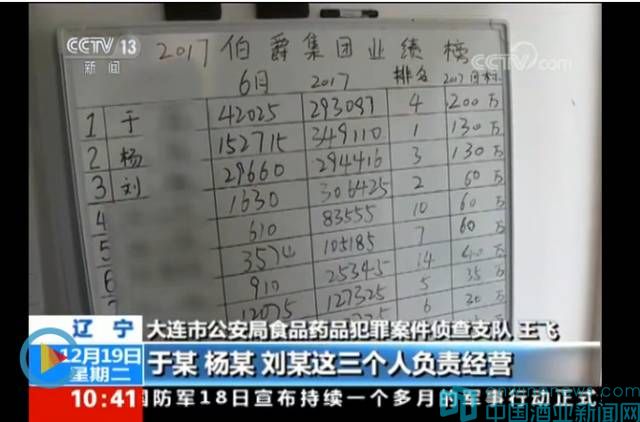 CCTV 13
新闻
央视网
2017 伯爵集团业绩榜
6月 2017 排名 2017目标
1 于 42025 293087 4 200万
2 杨 152715 349110 1 130万
3 刘 29660 294416 3 130万
4 1630 306425 2 60万
5 610 83555 10 60万
6 105185 7 60万
910 25345 14 40万
12075 127325 5 35万
6 30万
辽宁 大连市公安局食品药品犯罪案件侦查支队 王飞
12月19日 于某 杨某 刘某这三个人负责经营
星期二
10:41 国防军18日宣布持续一个多月的军事行动正式
中国酒业新闻网